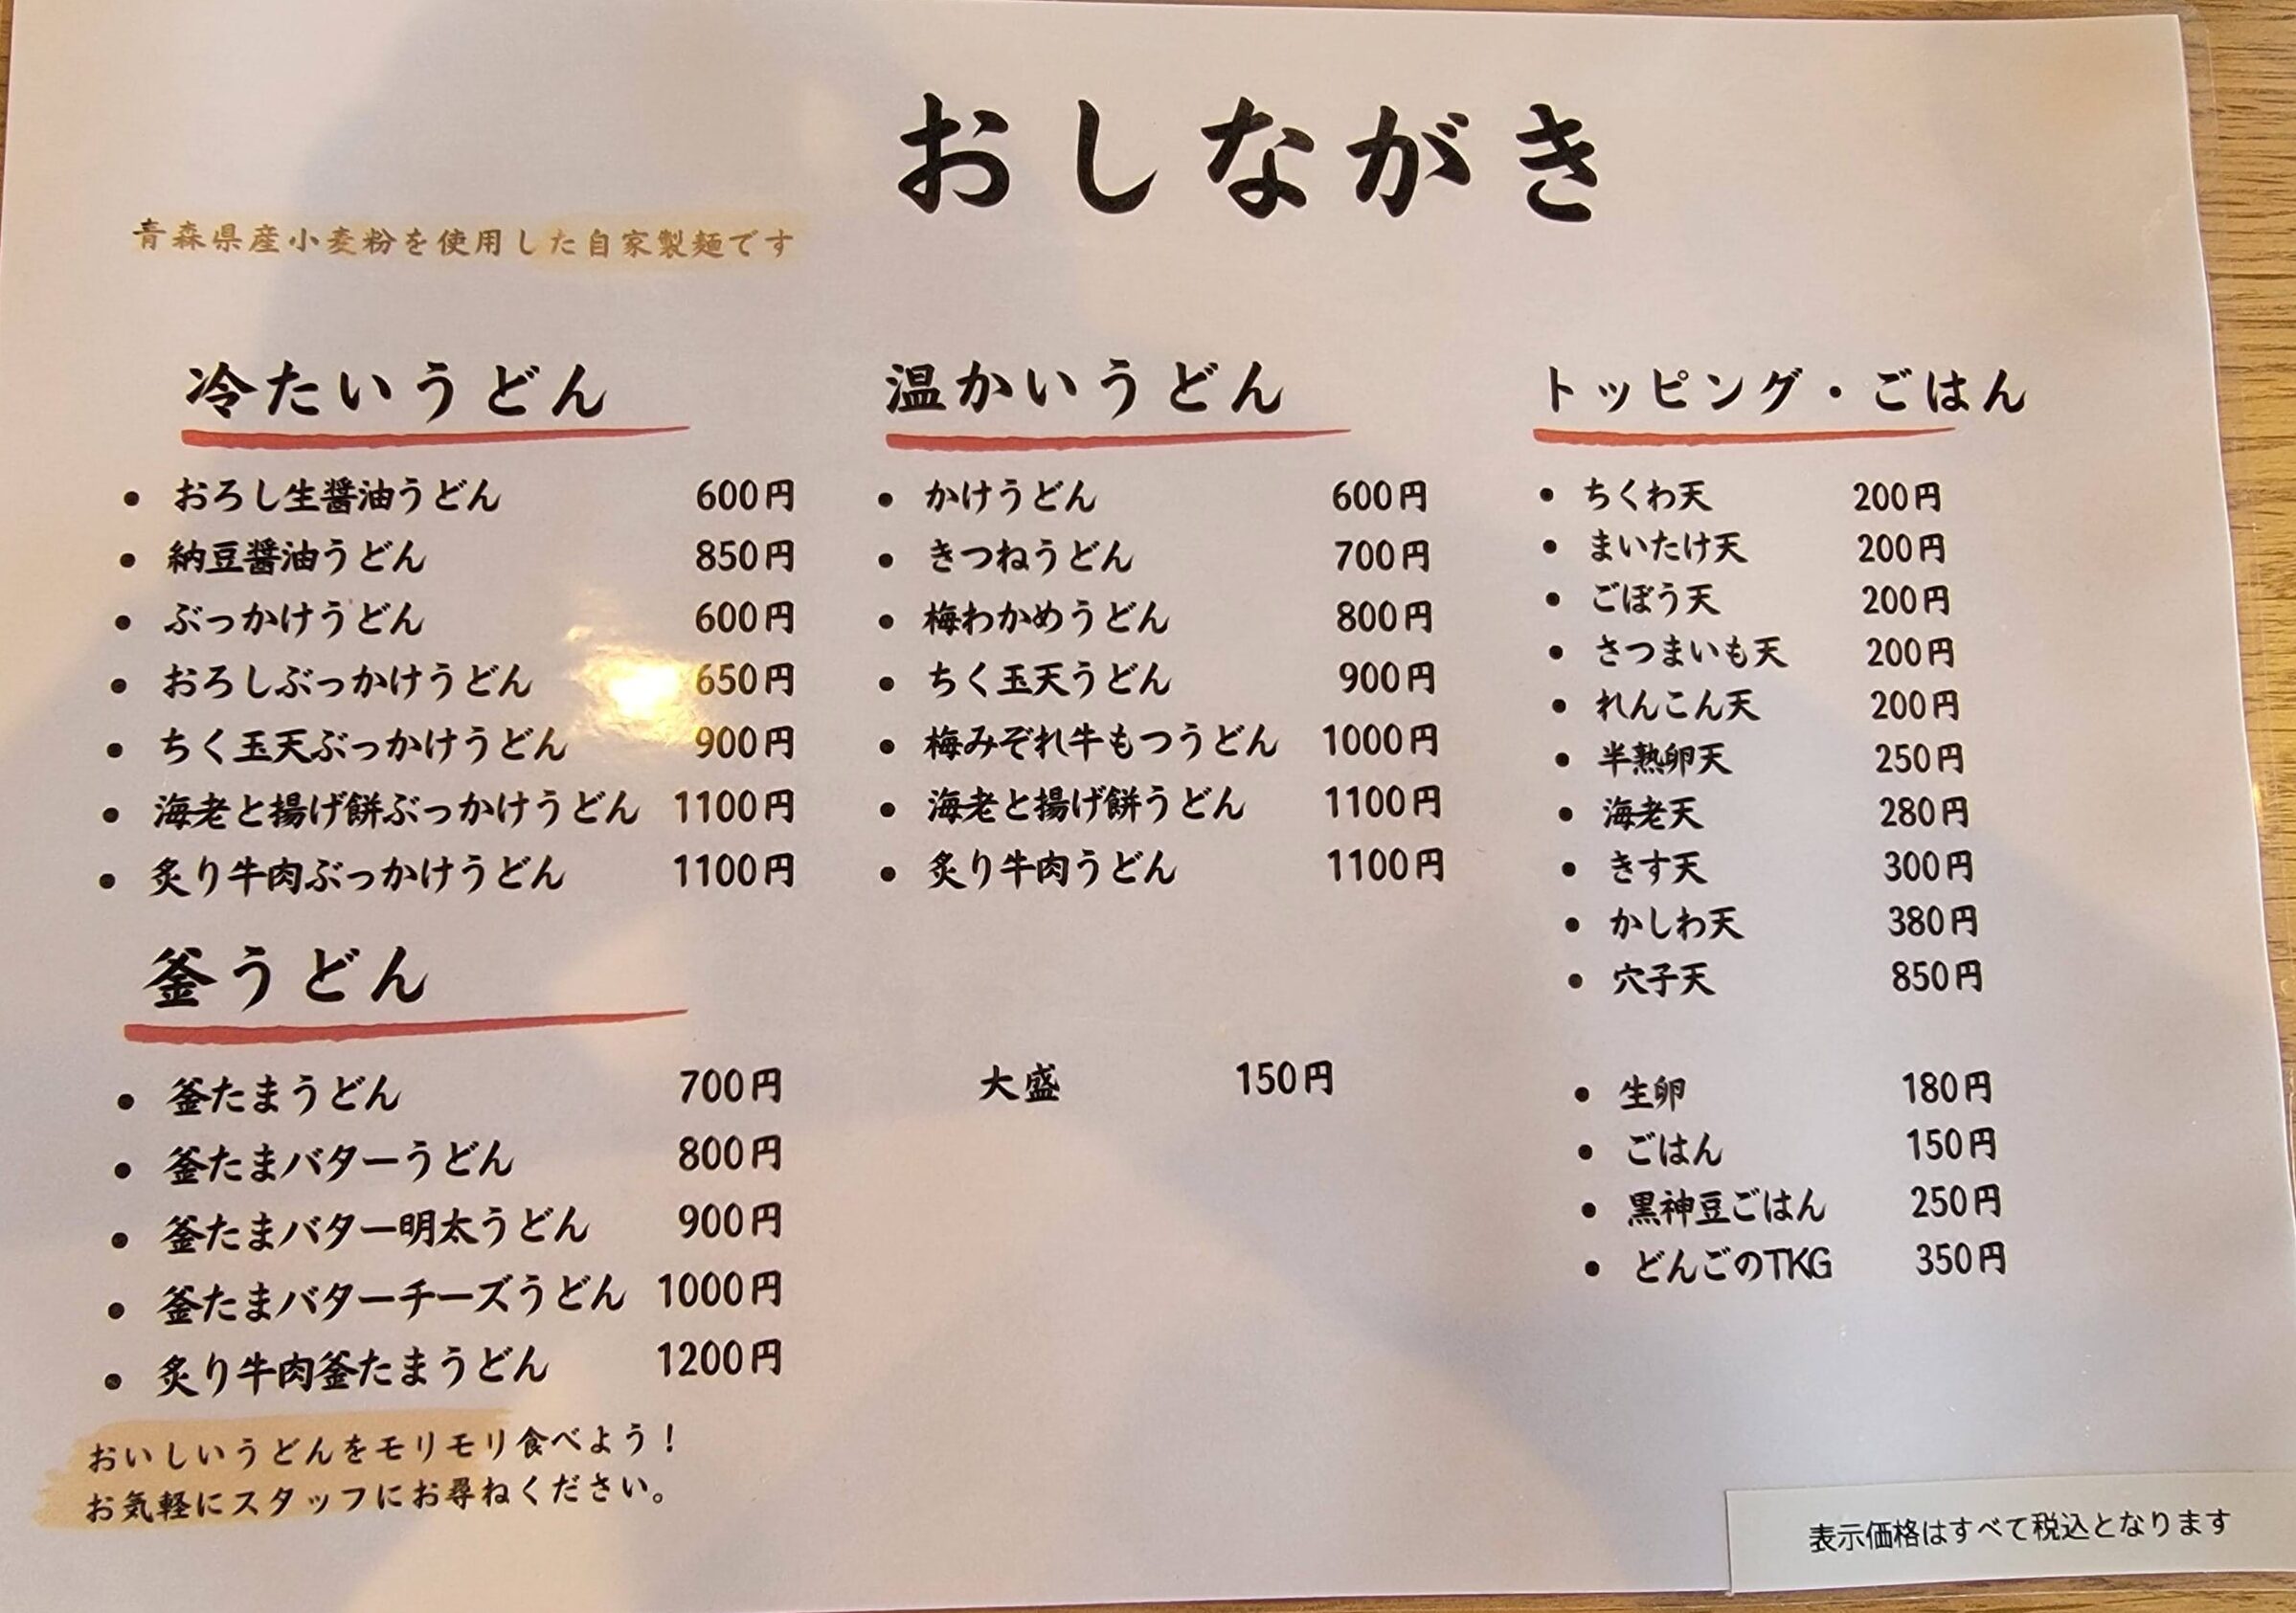 おしながき
青森県産小麦粉を使用した自家製麺です
冷たいうどん
・おろし生醤油うどん 600円
・納豆醤油うどん 850円
・ぶっかけうどん 600円
・おろしぶっかけうどん 650円
・ちく玉天ぶっかけうどん 900円
・海老と揚げ餅ぶっかけうどん 1100円
・炙り牛肉ぶっかけうどん 1100円
釜うどん
・釜たまうどん 700円
・釜たまバターうどん 800円
・釜たまバター明太うどん 900円
・釜たまバターチーズうどん 1000円
・炙り牛肉釜たまうどん 1200円
おいしいうどんをモリモリ食べよう!
お気軽にスタッフにお尋ねください。
温かいうどん
・かけうどん 600円
・きつねうどん 700円
・梅わかめうどん 800円
・ちく玉天うどん 900円
・梅みぞれ牛もつうどん 1000円
・海老と揚げ餅うどん 1100円
・炙り牛肉うどん 1100円
大盛 150円
トッピング・ごはん
・ちくわ天 200円
・まいたけ天 200円
・ごぼう天 200円
・さつまいも天 200円
・れんこん天 200円
・半熟卵天 250円
・海老天 280円
・きす天 300円
・かしわ天 380円
・穴子天 850円
・生卵 180円
・ごはん 150円
・黒神豆ごはん 250円
・どんごのTKG 350円
表示価格はすべて税込となります